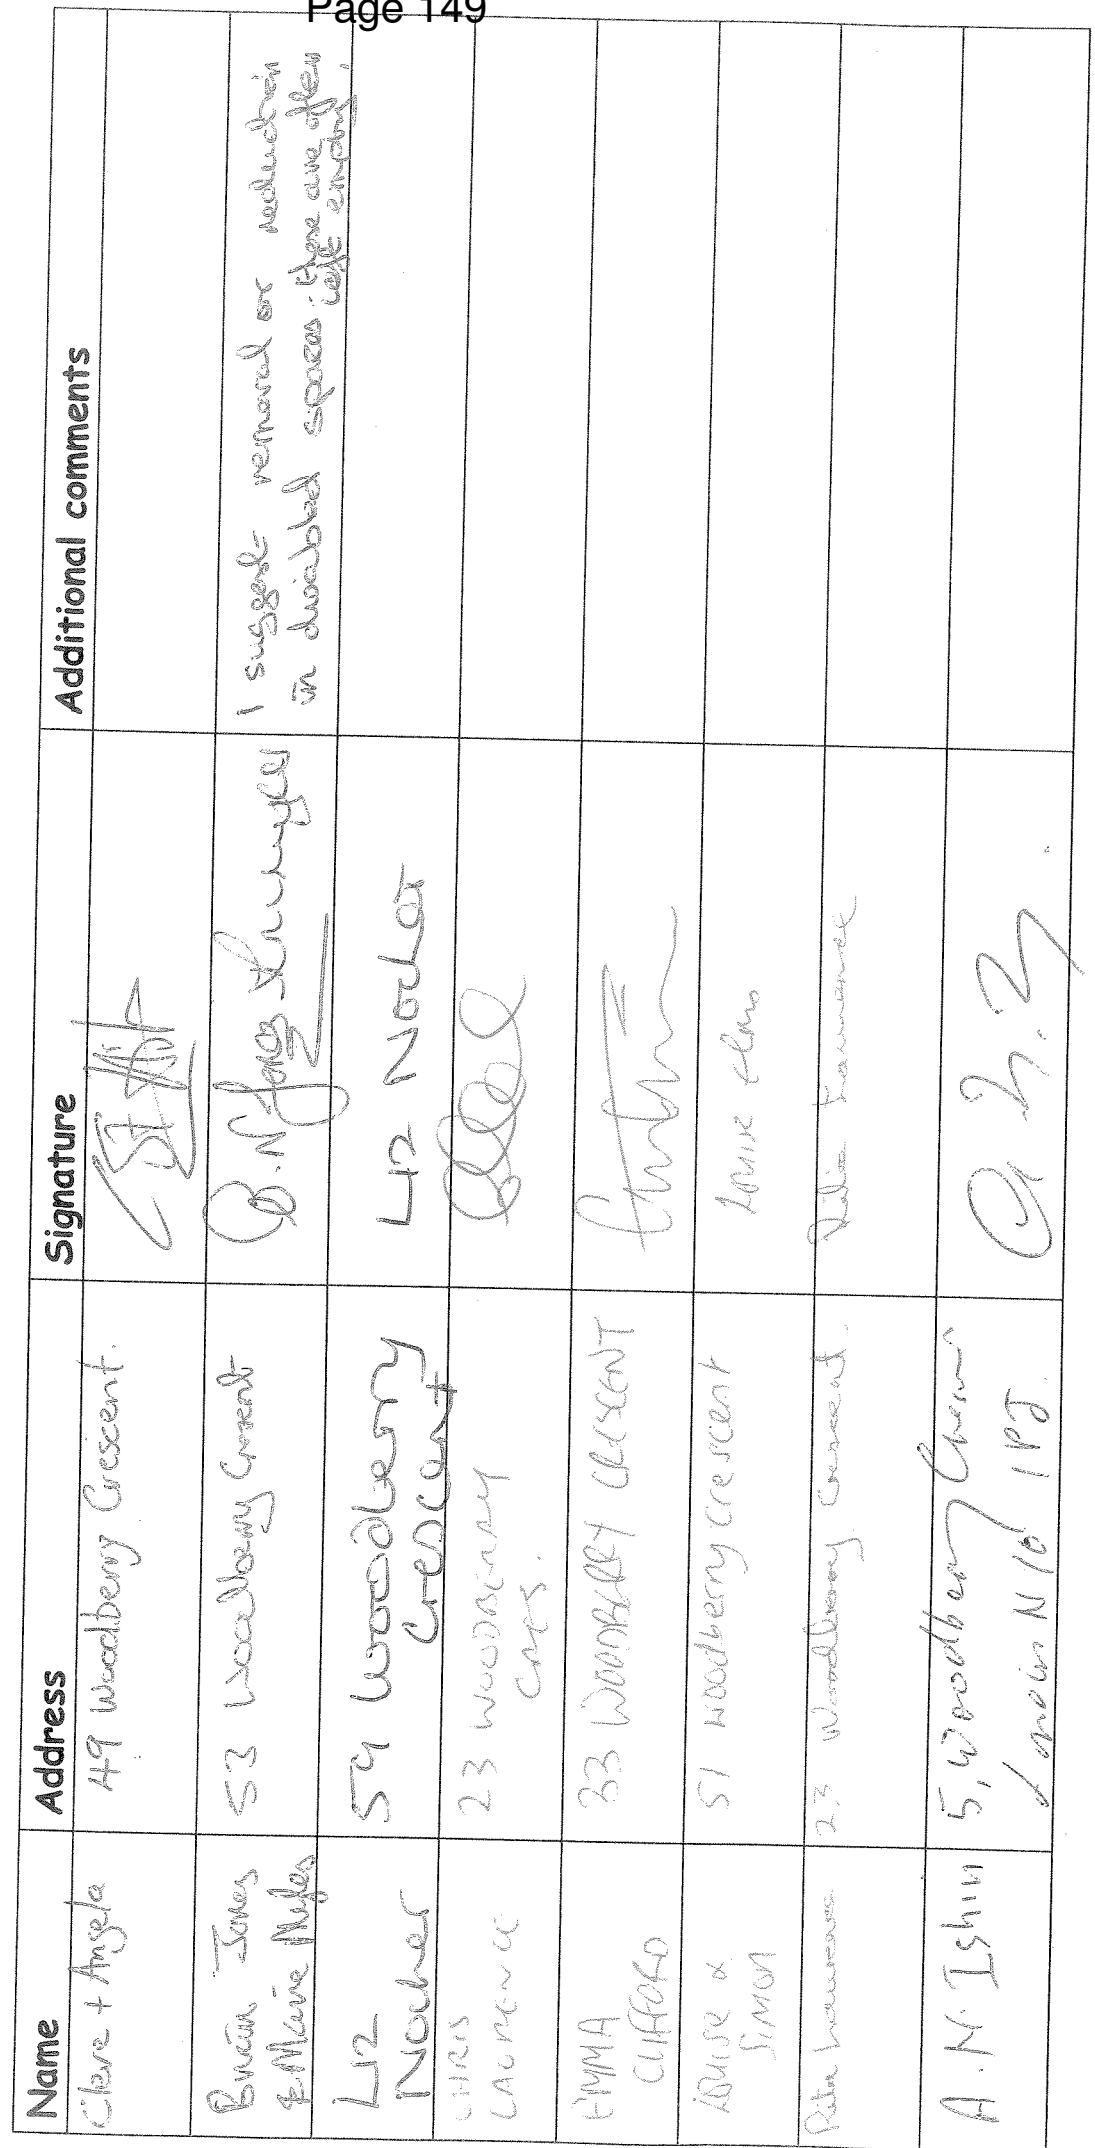 Page 149
Name Address Signature Additional comments
Clare + Angela 49 Woodberry Crescent.
Brian Jones
& Maire Myles 53 Woodberry Crescent B. N. Jones I suggest removal or reduction
in disabled spaces. these are often
left empty.
Liz
Nocher 54 Woodberry
Crescent Liz Nocher
CHRIS
LAURENCE 23 WOODBERRY
CRES.
EMMA
CLIFFORD 33 WOODBERRY CRESCENT
LOUISE &
SIMON 51 Woodberry Crescent Louise
23 Woodberry Crescent.
A. N. Ishin 5, Woodberry
London N10 1PJ.